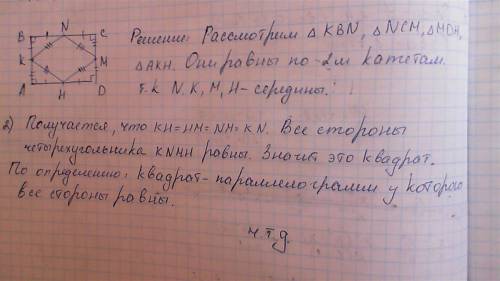 B N C
K M
A H D
Решение: Рассмотрим △ KBN, △ NCM, △ MDH,
△ AKH. Они равны по 2м катетам.
т.к N. K, M, H- середины.
2) Получается, что KH=HM=NH=KN. Все стороны
четырехугольника KNHH равны. Значит это квадрат.
По определению: квадрат- параллелограмм у которого
все стороны равны.
ч.т.д.